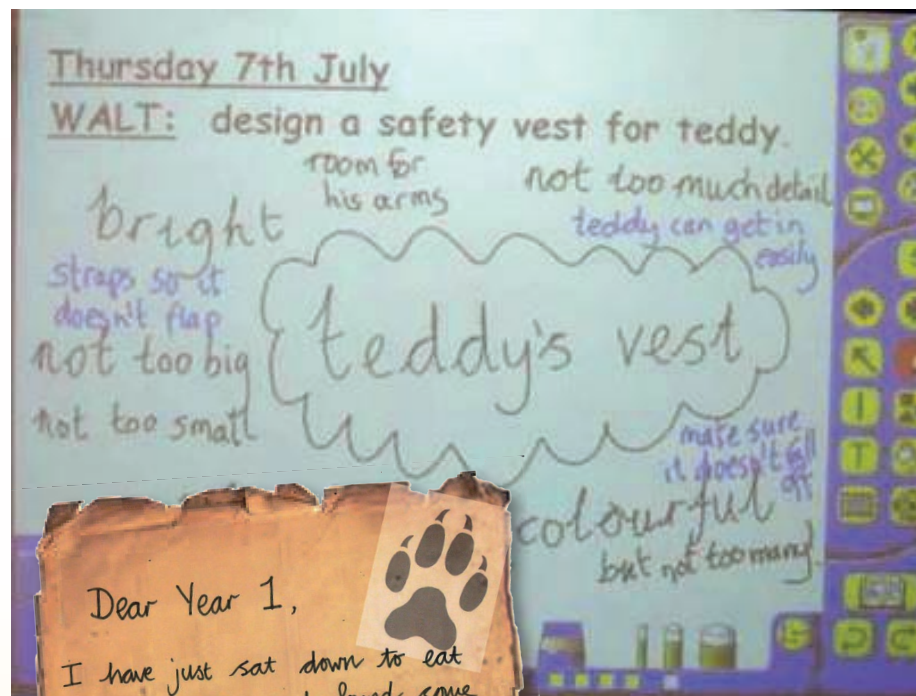 Thursday 7th July
WALT: design a safety vest for teddy.
room for
his arms
not too much detail
bright
teddy can get in
easily
straps so it
doesn't flap
teddy's vest
not too big
not too small
make sure
it doesn't fall
off
colourful
but not too many!
Dear Year 1,
I have just sat down to eat
some